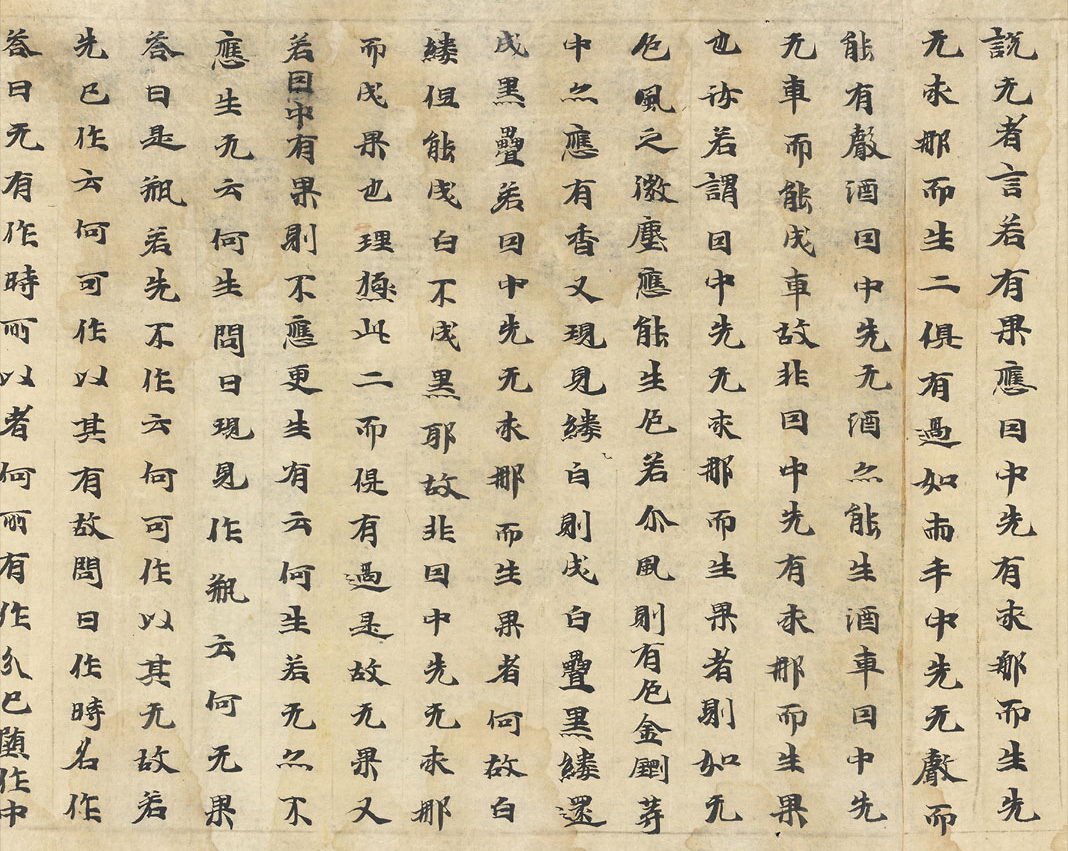 説无者言若有果應因中先有求那而生先
无求那而生二俱有過如兩手中先无聲而
能有聲酒因中先无酒亦能生酒車因中先
无車而能成車故非因中先有求那而生果
也亦若謂因中先无求那而生果者則如无
色風之微塵應能生色若尒風則有色金剛等
中亦應有香又現見縷白則成白疊黑縷還
成黑疊若因中先无求那而生果者何故白
縷但能成白不成黑耶故非因中先无求那
而成果也理極此二而俱有過是故无果又
若因中有果則不應更生有云何生若无亦不
應生无云何生問曰現見作瓶云何无果
答曰是瓶若先不作云何可作以其无故若
先已作云何可作以其有故問曰作時名作
答曰无有作時所以者何所有作分已墮作中